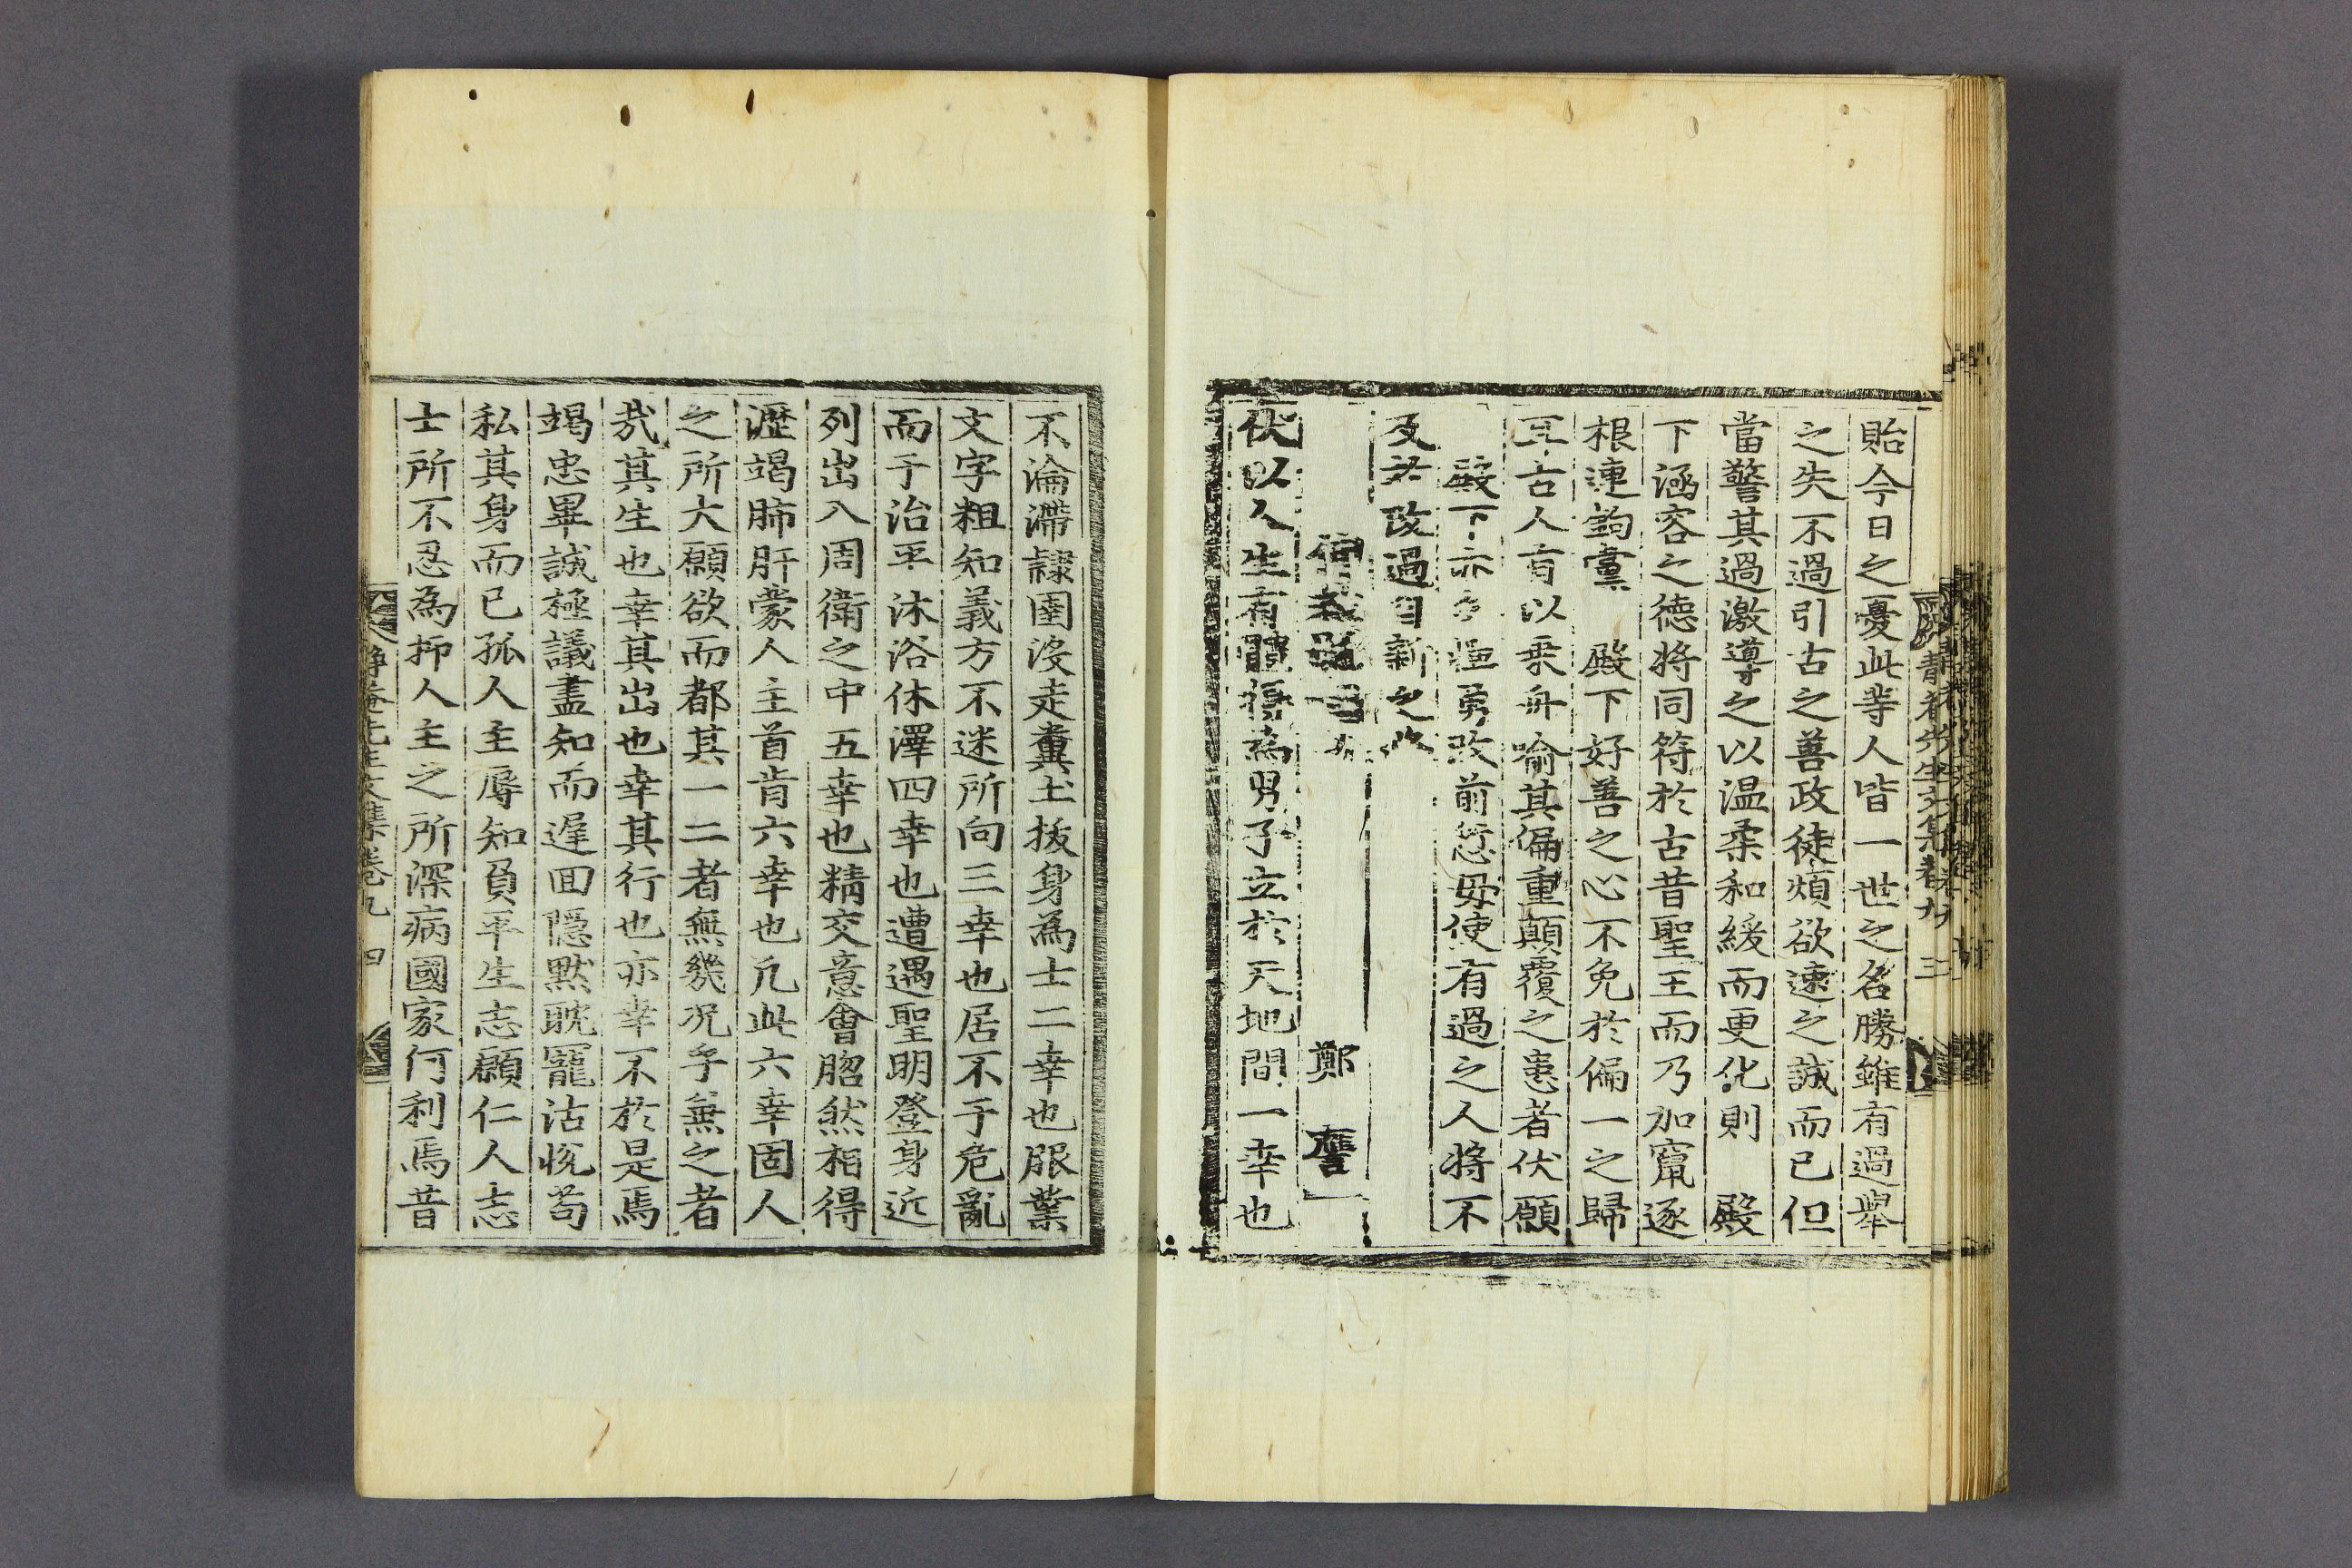 貽今日之憂此等人皆一世之名勝雖有過舉
之失不過引古之善政徒煩欲速之誠而已但
當警其過激導之以温柔和緩而更化則 殿
下涵容之德將同符於古昔聖王而乃加竄逐
根連鉤黨 殿下好善之心不免於偏一之歸
古人有以乘舟喻其偏重顚覆之患者伏願
殿下亦 勇改前愆毋使有過之人將不
及 改過自新之
鄭譍
伏以人生有體得爲男子立於天地間一幸也
靜菴先生文集卷九 三
不淪滯隷圉沒走糞土拔身爲士二幸也服業
文字粗知義方不迷所向三幸也居不于危亂
而于治平沐浴休澤四幸也遭遇聖明登身近
列出入周衛之中五幸也精交意會䐇然相得
瀝竭肺肝蒙人主首肯六幸也凡此六幸固人
之所大願欲而都其一二者無幾况乎兼之者
㢤其生也幸其出也幸其行也亦幸不於是焉
竭忠畢誠極議盡知而遲回隱默耽寵沽悅苟
私其身而已孤人主辱知負平生志願仁人志
士所不忍爲抑人主之所深病國家何利焉昔
靜菴先生文集卷九 四